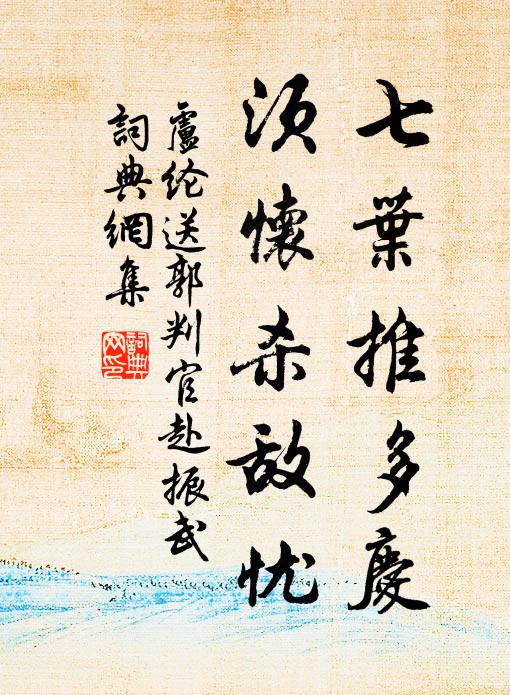 七葉推多慶
须懷杀敌忧
盧纶送郭判官赴振武
詞典網集
詞典
网印